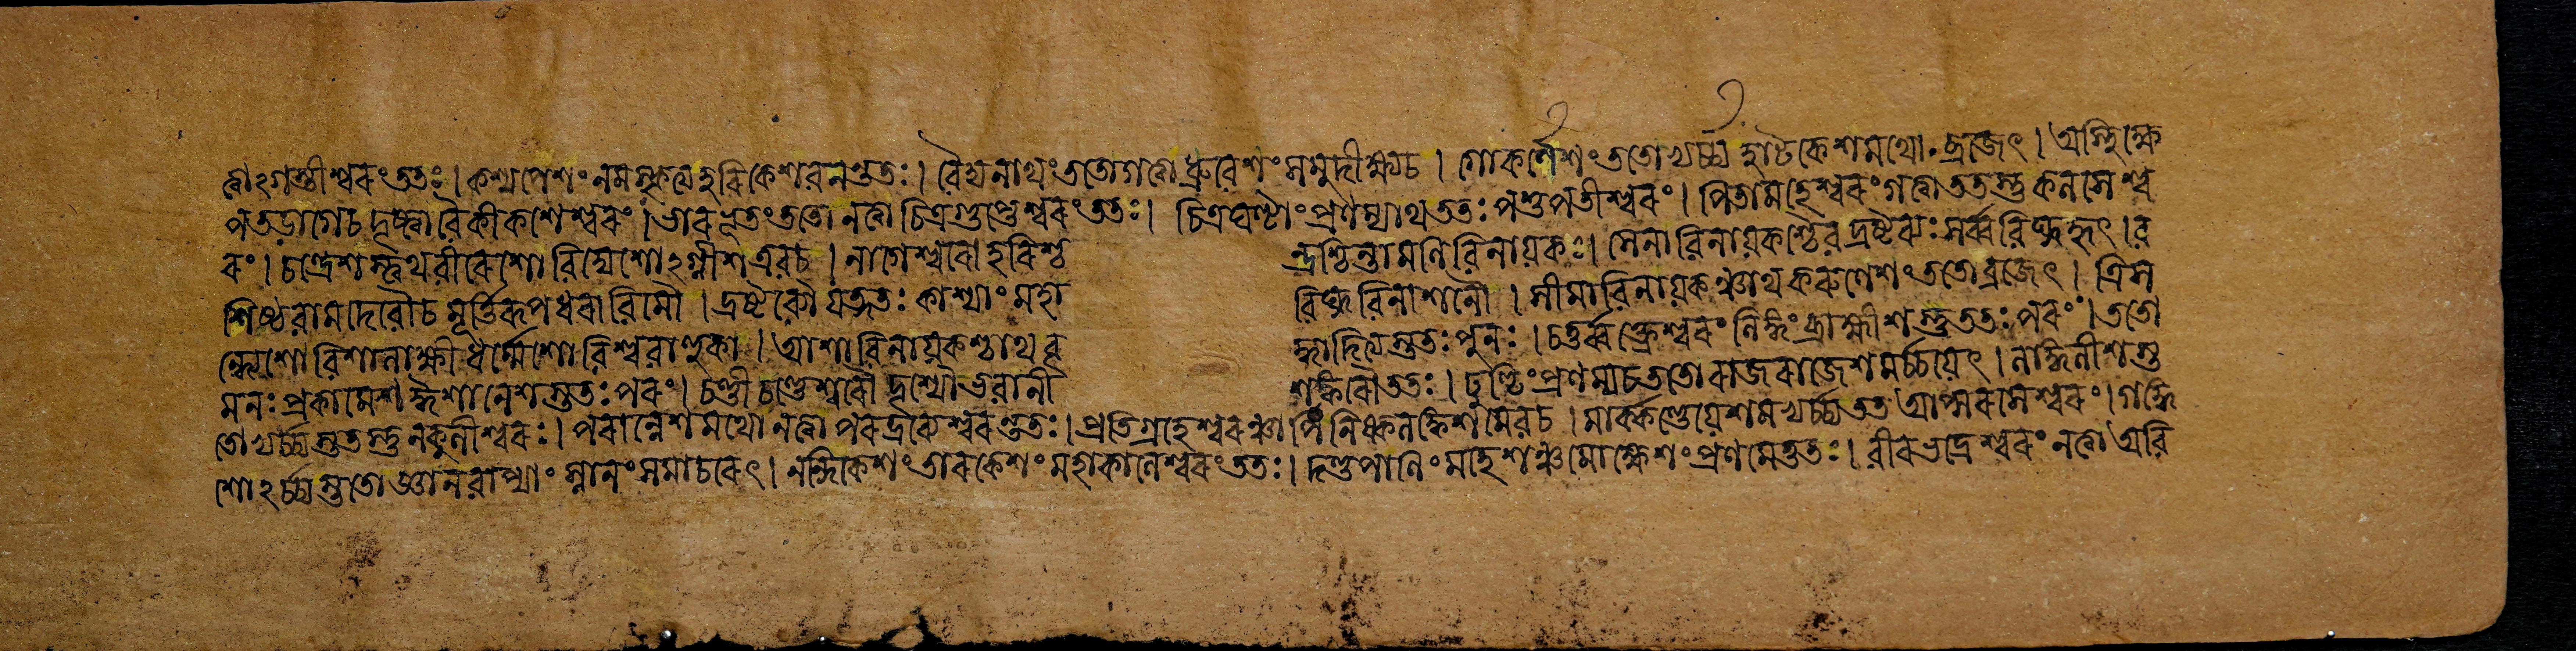 ত্বাঽগস্তীশ্বরং ততঃ । কশ্যপেশং নমস্কৃত্য হরিকেশবনন্ততঃ । বৈদ্যনাথং ততো গত্বা ধ্রুবেশং সমুদীক্ষ্য চ । গোকর্ণেশং ততোভ্যর্চ্চ্য হাটকেশমথো ব্রজেৎ । অস্থিক্ষে
পতডাগে চ দৃষ্ট্বা বৈ কীকশেশ্বরং । ভারভূতং ততো নত্বা চিত্রগুপ্তেশ্বরং ততঃ । চিত্রঘণ্টাং প্রণম্যাথ ততঃ পশুপতীশ্বরং । পিতামহেশ্বরং গত্বা ততস্তু কলসেশ্ব
রং । চন্দ্রেশস্ত্বথ বীরেশো বিদ্যেশোঽগ্নীশ এব চ । নাগেশ্বরো হরিশ্চ ন্দ্রশ্চিন্তামণিবিনায়কঃ । সেনাবিনায়কশ্চৈব দ্রষ্টব্যঃ সর্ব্ববিঘ্নহৃৎ । ব
শিষ্ঠবামদেবৌ চ মূর্ত্তিরূপধরাবিমৌ । দ্রষ্টব্যৌ যত্নতঃ কাশ্যাং মহা বিঘ্নবিনাশনৌ । সীমাবিনায়কঞ্চাথ করুণেশং ততো ব্রজেৎ । ত্রিস
ন্ধ্যেশো বিশালাক্ষী ধর্ম্মেশো বিশ্ববাহুকা । আশাবিনায়কশ্চাথ বৃ দ্ধাদিত্যস্ততঃ পুনঃ । চতুর্ব্বক্ত্রেশ্বরং লিঙ্গং ব্রাহ্মীশস্তু ততঃ পরং । ততো
মনঃপ্রকামেশ ঈশানেশস্ততঃ পরং । চণ্ডী চণ্ডেশ্বরৌ দৃশ্যৌ ভবানী শঙ্করৌ ততঃ । ঢুণ্ঢিং প্রণম্য চ ততো রাজরাজেশমর্চ্চয়েৎ । লাঙ্গলীশস্ত
তোভ্যর্চ্চ্যস্ততস্তু নকুলীশ্বরঃ । পরান্নেশমথো নত্বা পরদ্রব্যেশ্বরন্ততঃ । প্রতিগ্রহেশ্বরঞ্চাপি নিষ্কলঙ্কেশমেব চ । মার্কণ্ডেয়েশমভ্যর্চ্চ্য তত আপ্সরসেশ্বরং । গঙ্গে
শোঽর্চ্চ্যস্ততো জ্ঞানবাপ্যাং স্নানং সমাচরেৎ । নন্দিকেশং তারকেশং মহাকালেশ্বরং ততঃ । দণ্ডপাণিং মহেশঞ্চ মোক্ষেশং প্রণমেত্ততঃ । বীরভদ্রেশ্বরং নত্বা অবি